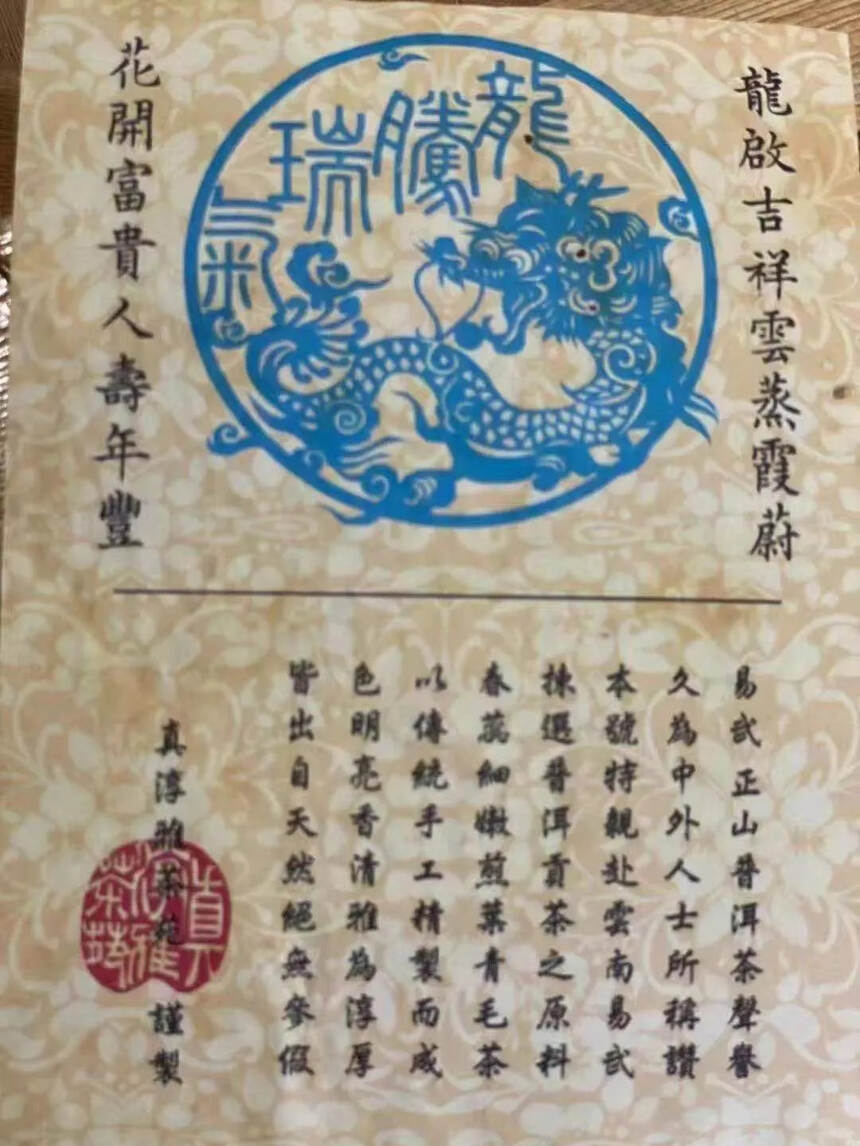 龍啟吉祥雲蒸霞蔚
龍騰瑞氣
花開富貴人壽年豐
易武正山普洱茶聲譽
久為中外人士所稱讚
本號特親赴雲南易武
揀選普洱貢茶之原料
春蕊細嫩煎葉青毛茶
以傳統手工精製而成
色明亮香清雅為淳厚
皆出自天然絕無參假
真淳雅茶苑 謹製
真淳雅茶苑